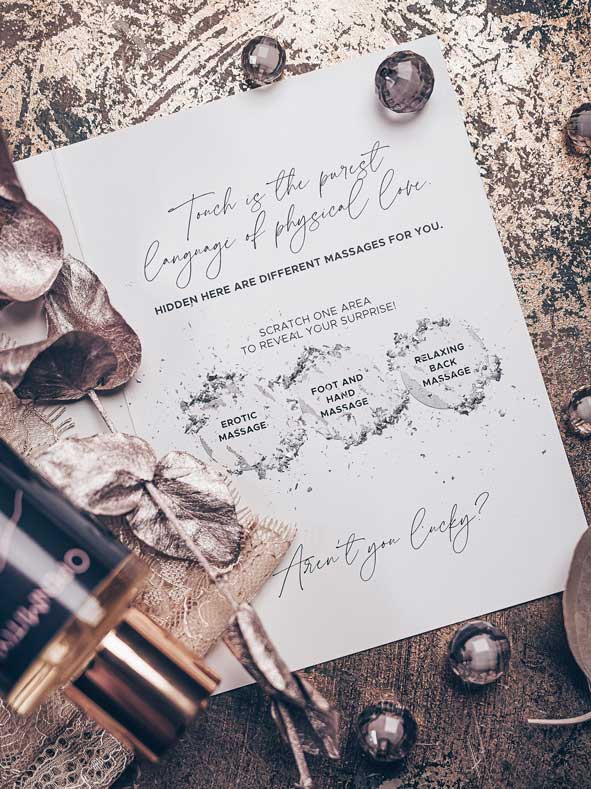 Touch is the purest
language of physical love.
HIDDEN HERE ARE DIFFERENT MASSAGES FOR YOU.
SCRATCH ONE AREA
TO REVEAL YOUR SURPRISE!
EROTIC
MASSAGE
FOOT AND
HAND
MASSAGE
RELAXING
BACK
MASSAGE
Aren't you lucky?